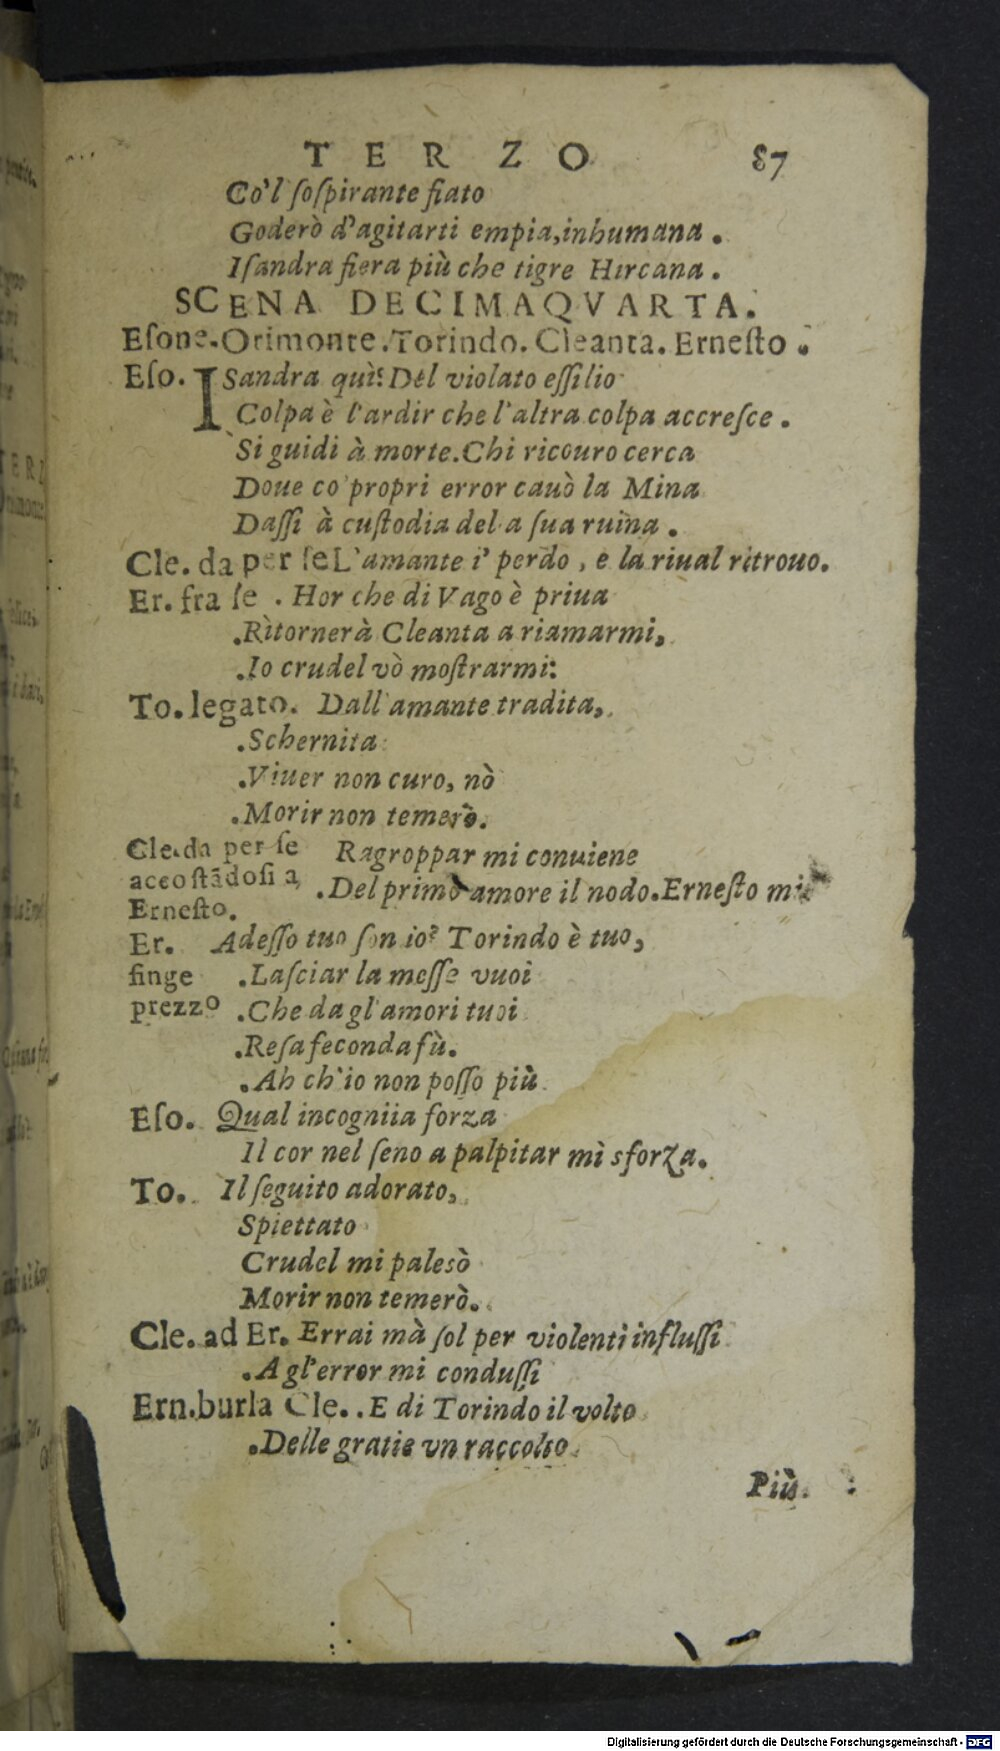 TERZO 87
Co'l ſoſpirante fiato
Goderò d'agitarti empia,inhumana .
Iſandra fiera più che tigre Hircana .
SCENA DECIMAQVARTA.
Eſone.Orimonte.Torindo. Cleanta. Erneſto .
Eſo. ISandra quì: Del violato eſſilio
Colpa è l'ardir che l'altra colpa accreſce .
Si guidi à morte.Chi ricouro cerca
Doue co' propri error cauò la Mina
Daſſi à cuſtodia del a ſua ruina .
Cle. da per ſe L'amante i' perdo , e la riual ritrouo.
Er. fra ſe . Hor che di Vago è priua
.Ritornerà Cleanta a riamarmi,
.Io crudel vò moſtrarmi:
To. legato. Dall'amante tradita,
.Schernita
.Viuer non curo, nò
.Morir non temerò.
Cle.da per ſe Ragroppar mi conuiene
accoſtãdoſi a .Del primo amore il nodo.Erneſto mi
Erneſto.
Er. Adeſſo tuo ſon io? Torindo è tuo,
finge .Laſciar la meſſe vuoi
prezzo .Che da gl'amori tuoi
.Reſa feconda fù.
.Ah ch'io non poſſo più
Eſo. Qual incogniia forza
Il cor nel ſeno a palpitar mì sforza.
To. Il ſeguito adorato,
Spiettato
Crudel mi palesò
Morir non temerò.
Cle. ad Er. Errai mà ſol per violenti influſſi
.A gl'error mi conduſſi
Ern.burla Cle. .E di Torindo il volto
.Delle gratie vn raccolto
Più.
Digitalisierung gefördert durch die Deutsche Forschungsgemeinschaft - DFG